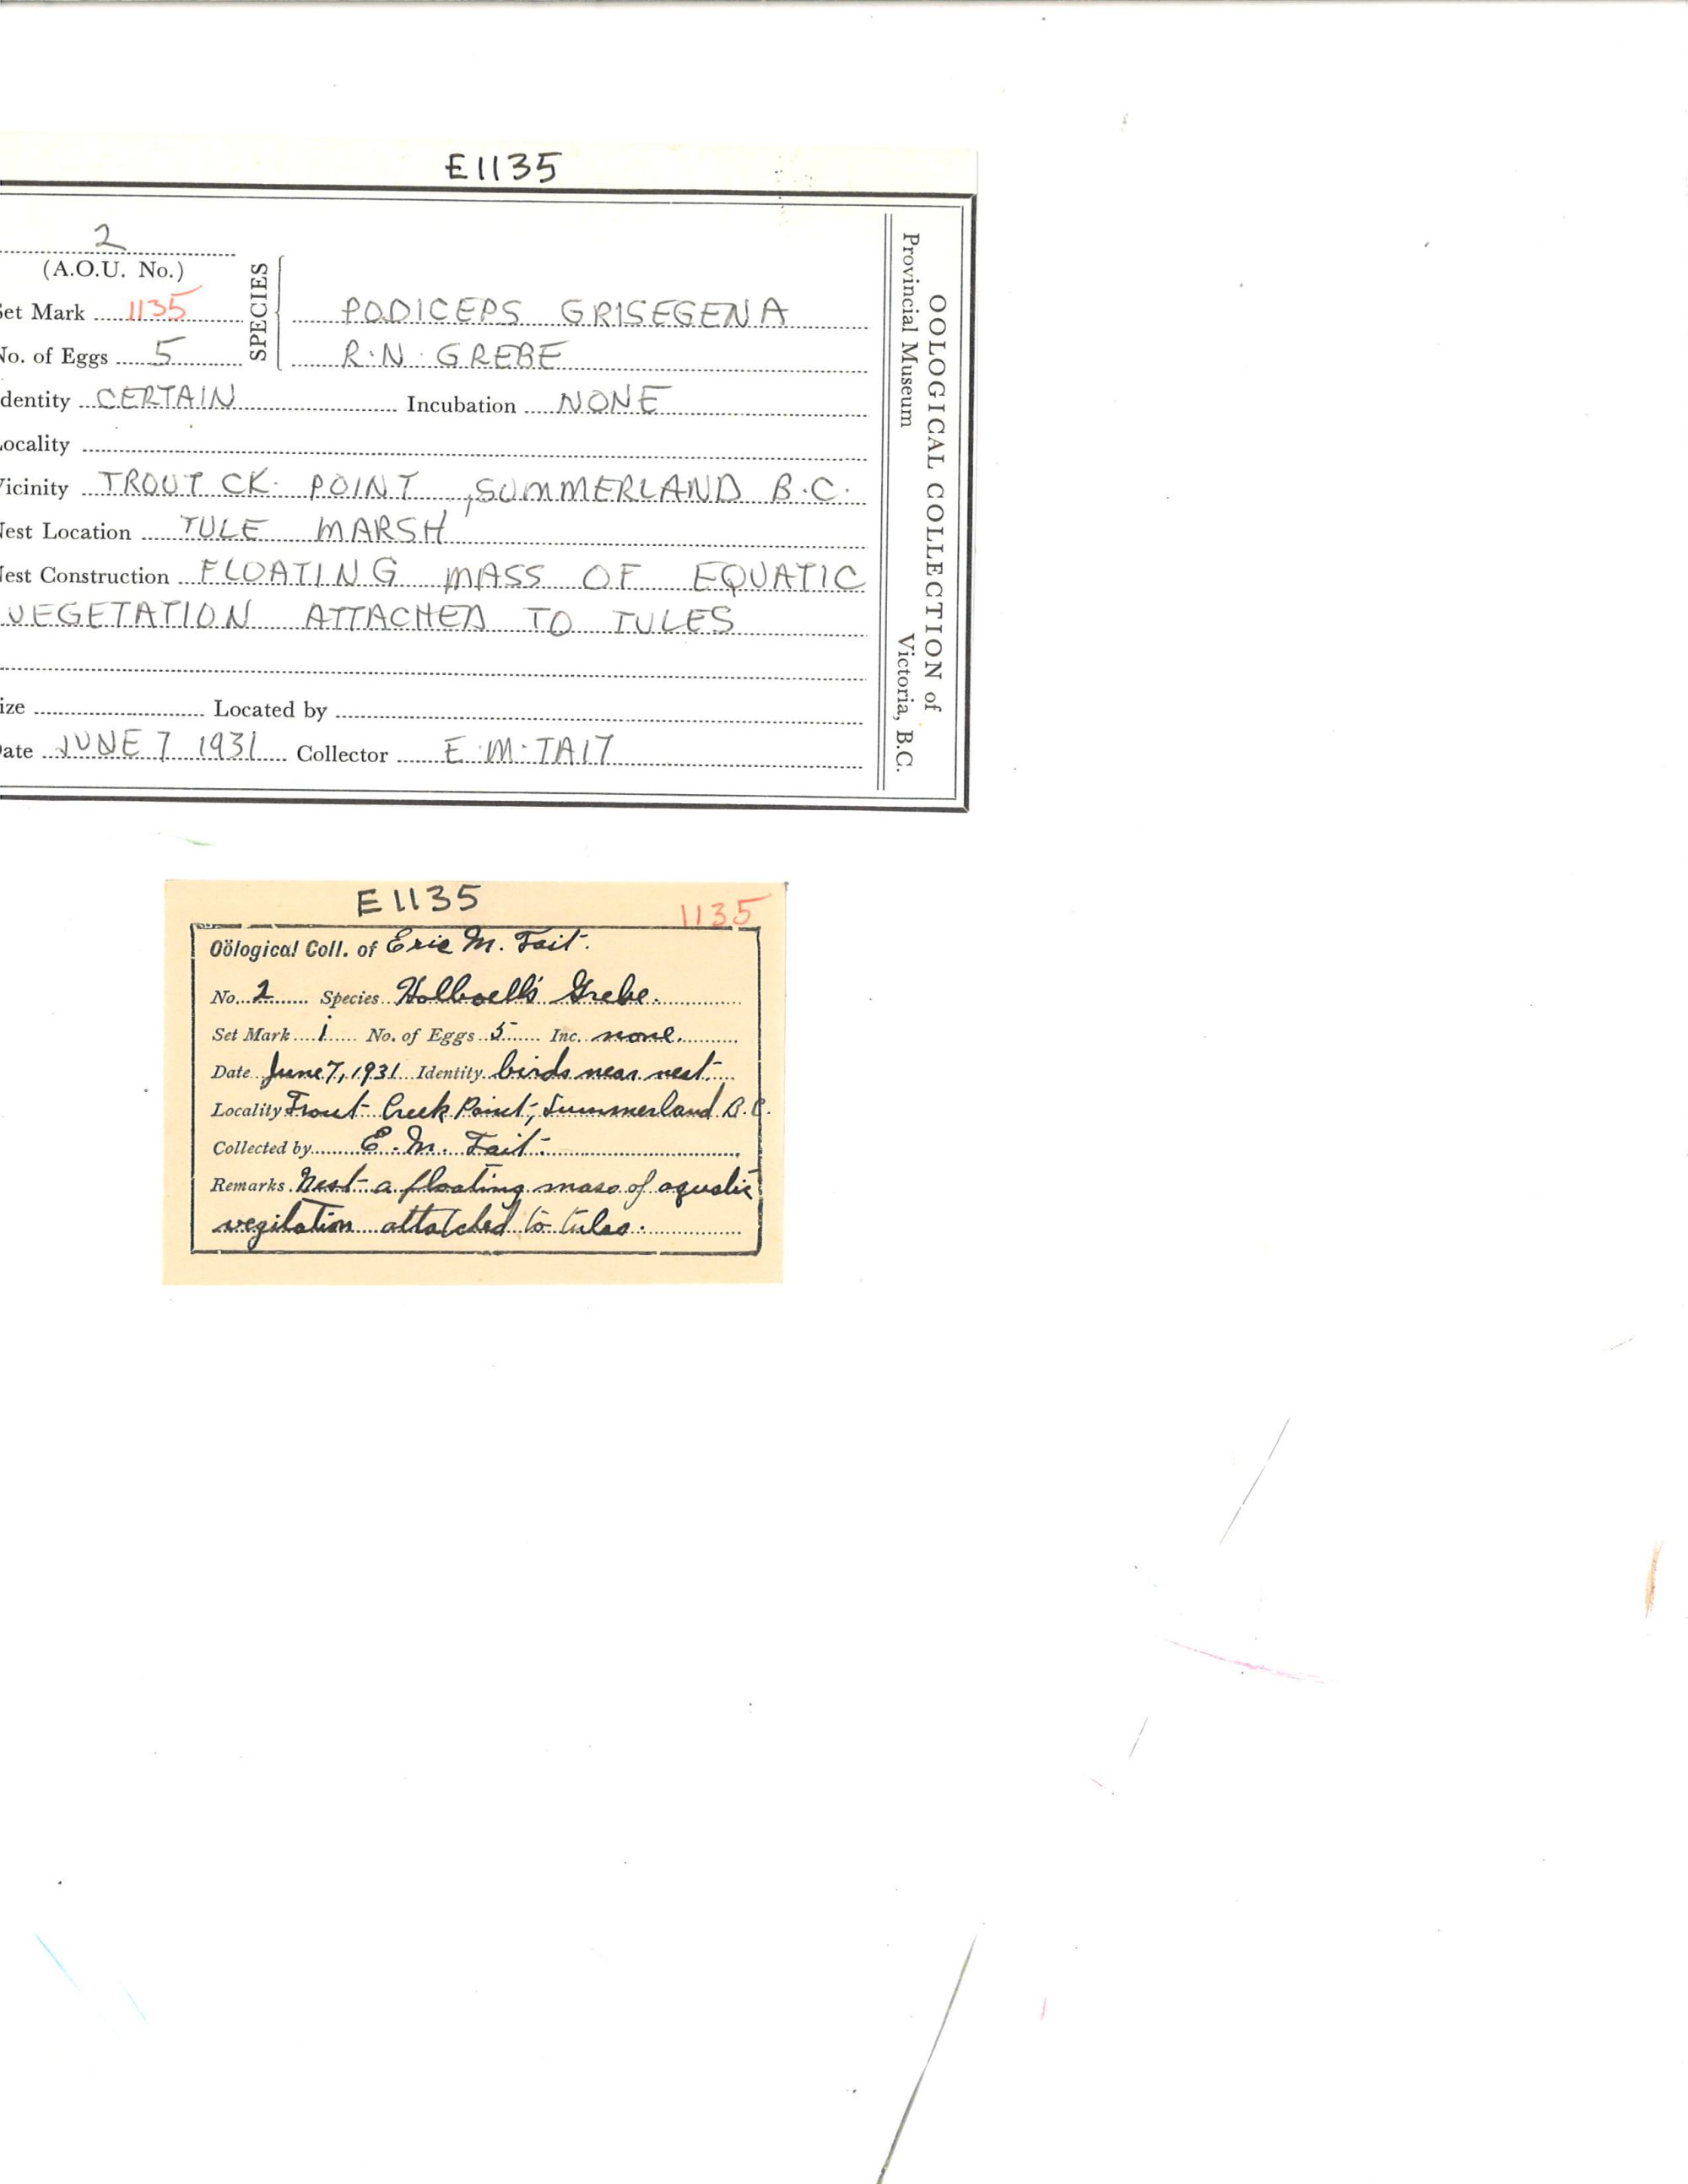 E1135
2
(A.O.U. No.)
et Mark 1135
SPECIES
PODICEPS GRISEGENA
No. of Eggs 5
R.N. GREBE
dentity CERTAIN Incubation NONE
ocality
icinity TROUT CK. POINT, SUMMERLAND B.C.
est Location TULE MARSH
est Construction FLOATING MASS OF EQUATIC
VEGETATION ATTACHED TO TULES
ize Located by
ate JUNE 7 1931 Collector E.M. TAIT
OOLOGICAL COLLECTION of
Provincial Museum Victoria, B.C.
E1135
1135
Oölogical Coll. of Eric M. Tait.
No. 2 Species Holboell's Grebe.
Set Mark 1 No. of Eggs 5 Inc. none.
Date June 7, 1931 Identity birds near nest.
Locality Trout Creek Point, Summerland B.C.
Collected by E. M. Tait.
Remarks Nest a floating mass of aquatic
vegitation attatched to tules.